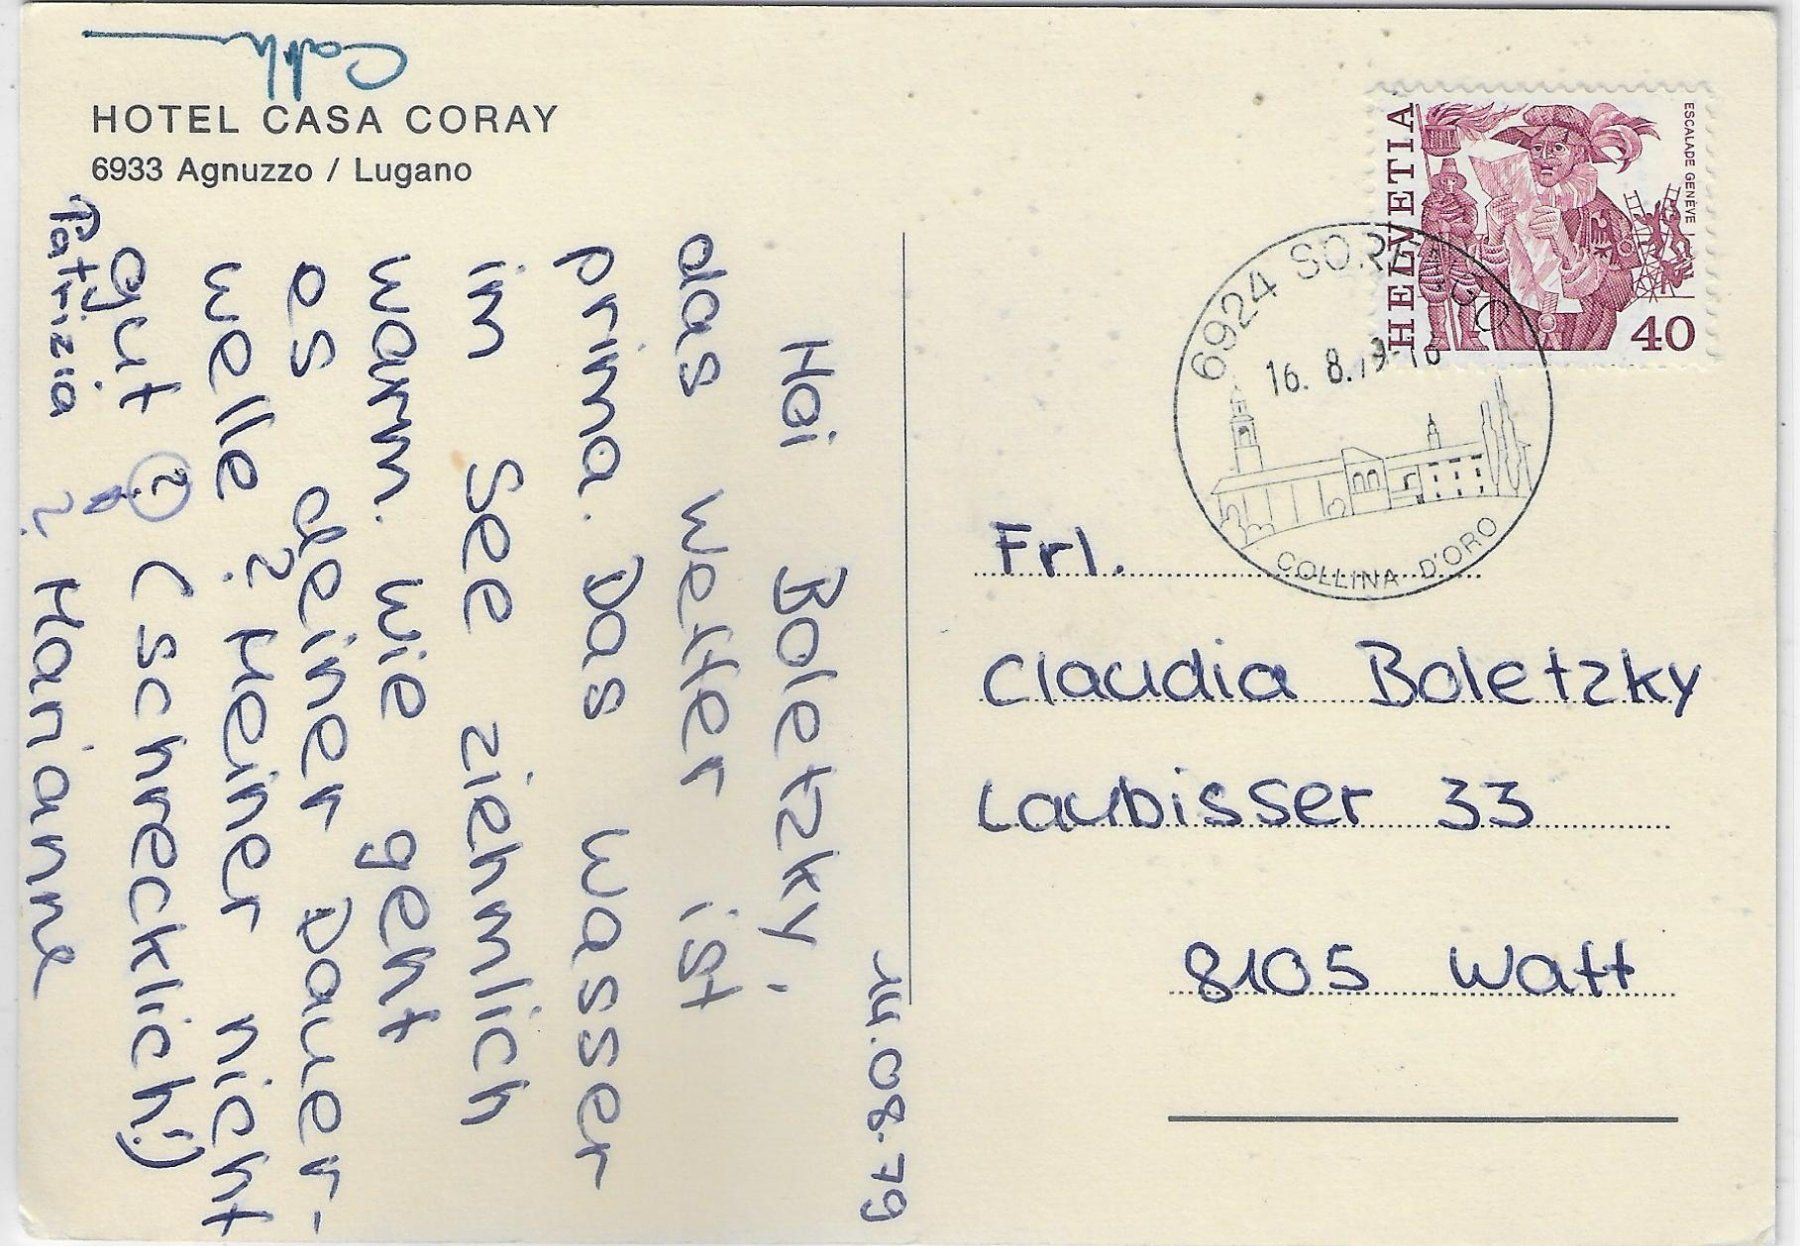 HOTEL CASA CORAY
6933 Agnuzzo / Lugano
14.08.79
Hoi Boletzky,
das Wetter ist
prima. Das Wasser
im See ziehmlich
warm. Wie geht
es deiner Dauer-
welle? Meiner nicht
gut (schrecklich!)
Patrizia ? Marianne
HELVETIA
ESCALADE GENÈVE
40
6924 SORENGO
16. 8.79-18
COLLINA D'ORO
Frl.
Claudia Boletzky
Laubisser 33
8105 Watt